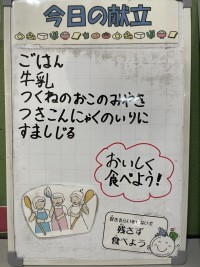 今日の献立
ごはん
牛乳
つくねのおこのみやき
つきこんにゃくのいりに
すましじる
おいしく
食べよう!
残さず
食べよう